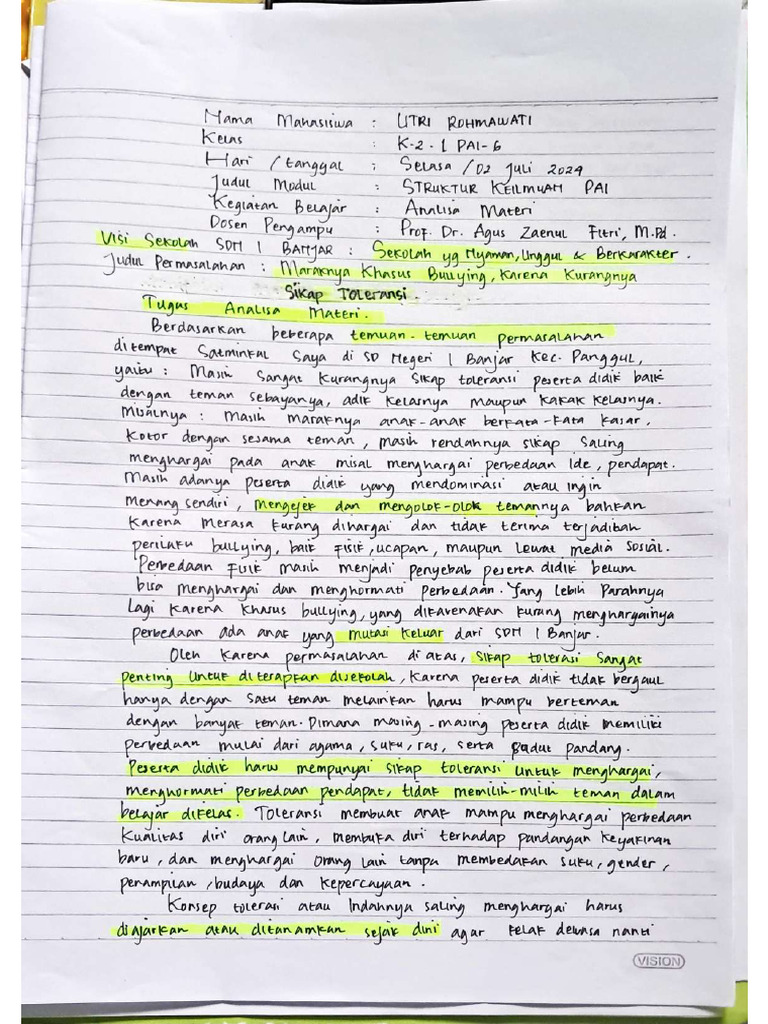 Nama Mahasiswa : UTRI ROHMAWATI
Kelas : K-2-1 PAI-6
Hari /tanggal : Selasa /02 Juli 2024
Judul Modul : STRUKTUR KEILMUAN PAI
Kegiatan Belajar : Analisa Materi
Dosen Pengampu : Prof. Dr. Agus Zaenul Fitri, M.Pd.
Visi Sekolah SDN 1 BANJAR : Sekolah yg Nyaman, Unggul & Berkarakter.
Judul Permasalahan : Maraknya Khasus Bullying, Karena Kurangnya
Sikap Toleransi.
Tugas Analisa Materi.
Berdasarkan beberapa temuan-temuan permasalahan
ditempat Satminkal Saya di SD Negeri 1 Banjar Kec. Panggul,
yaitu : Masih Sangat Kurangnya Sikap toleransi peserta didik baik
dengan teman sebayanya, adik kelasnya maupun kakak kelasnya.
Misalnya : Masih maraknya anak-anak berkata-kata kasar,
kotor dengan sesama teman, masih rendahnya sikap Saling
menghargai pada anak misal menghargai perbedaan Ide, pendapat.
Masih adanya peserta didik yang mendominasi atau ingin
menang sendiri, mengejek dan mengolok-olok temannya bahkan
karena merasa kurang dihargai dan tidak terima terjadilah
perilaku bullying, baik fisik, ucapan, maupun lewat media sosial.
Perbedaan Fisik masih menjadi penyebab peserta didik belum
bisa menghargai dan menghormati perbedaan. Yang lebih Parahnya
lagi karena khasus bullying, yang dikarenakan kurang menghargainya
perbedaan ada anak yang mutasi keluar dari SDN 1 Banjar.
Oleh karena permasalahan di atas, Sikap tolerasi Sangat
penting untuk diterapkan disekolah, karena peserta didik tidak bergaul
hanya dengan satu teman melainkan harus mampu berteman
dengan banyak teman. Dimana masing-masing peserta didik memiliki
perbedaan mulai dari agama, suku, ras, serta Sudut pandang.
Peserta didik harus mempunyai sikap toleransi untuk menghargai,
menghormati perbedaan pendapat, tidak memilih-milih teman dalam
belajar dikelas. Toleransi membuat anak mampu menghargai perbedaan
Kualitas diri orang lain, membuka diri terhadap pandangan keyakinan
baru, dan menghargai orang lain tanpa membedakan suku, gender,
penampilan, budaya dan kepercayaan.
Konsep tolerasi atau Indahnya saling menghargai harus
diajarkan atau ditanamkan sejak dini agar telak dewasa nanti
VISION